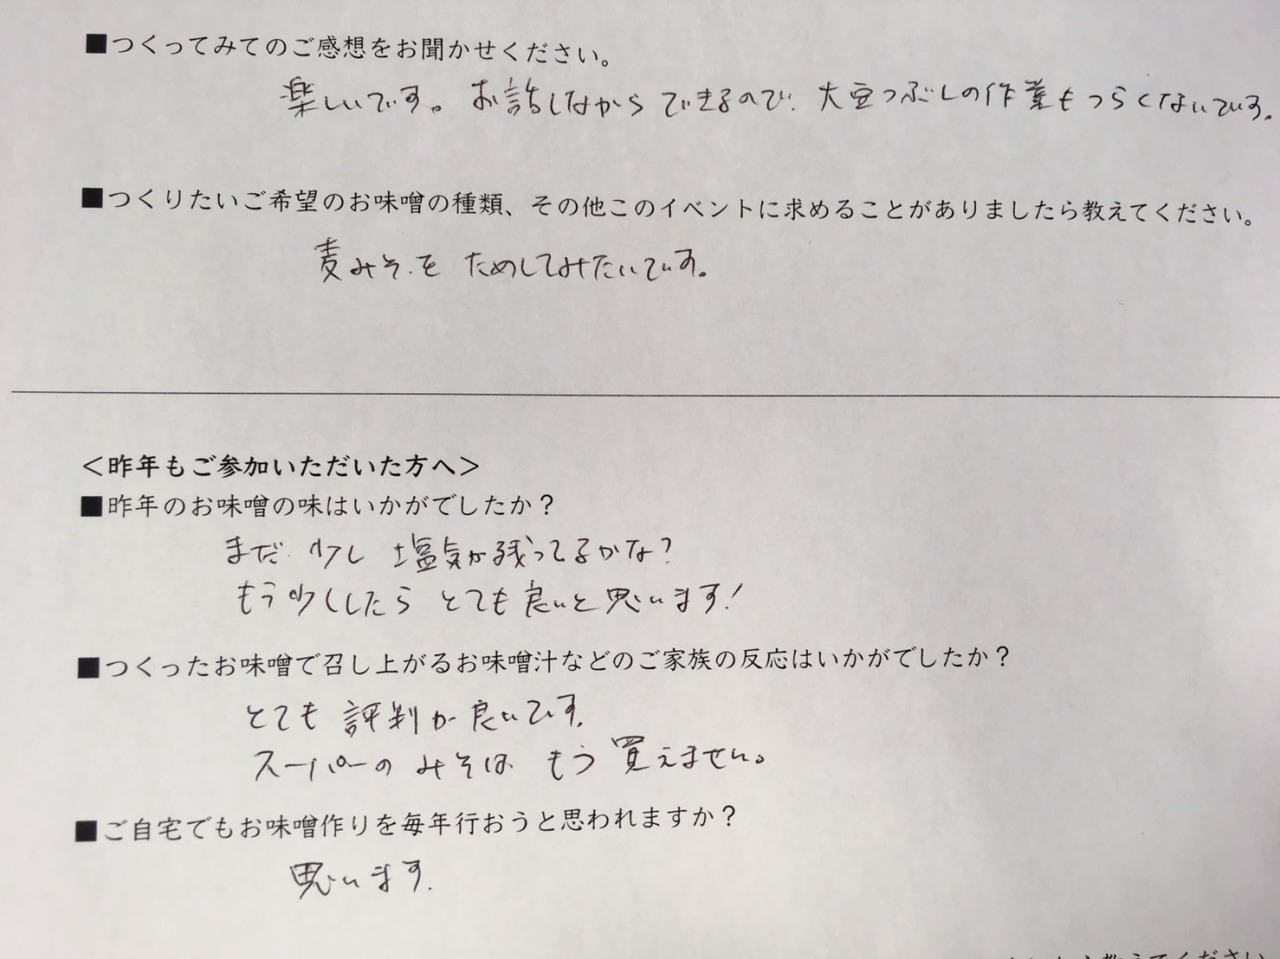 ■つくってみてのご感想をお聞かせください。
楽しいです。お話しながらできるので、大豆つぶしの作業もつらくないです。
■つくりたいご希望のお味噌の種類、その他このイベントに求めることがありましたら教えてください。
麦みそをためしてみたいです。
＜昨年もご参加いただいた方へ＞
■昨年のお味噌の味はいかがでしたか？
まだ少し塩気が残ってるかな？
もう少ししたらとても良いと思います！
■つくったお味噌で召し上がるお味噌汁などのご家族の反応はいかがでしたか？
とても評判が良いです。
スーパーのみそはもう買えません。
■ご自宅でもお味噌作りを毎年行おうと思われますか？
思います。
教えてください